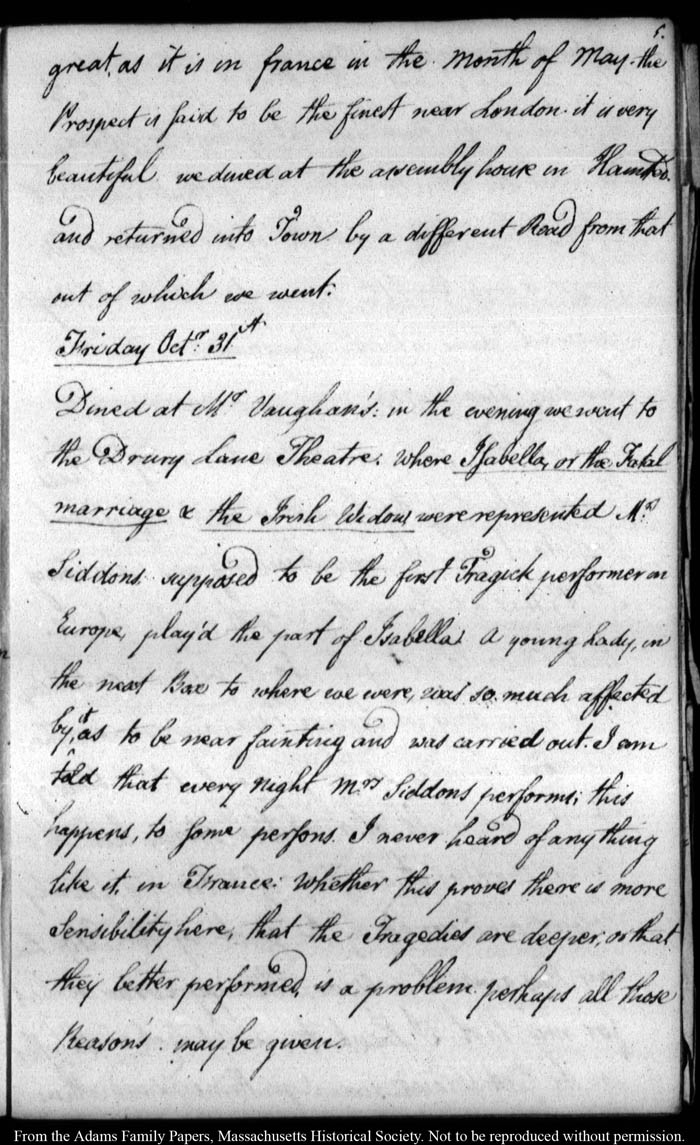 5.
great, as it is in france in the month of May. the
Prospect is said to be the finest near London. it is very
beautiful. we dined at the assembly house in Hamsted.
and returned into Town by a different Road from that
out of which we went.
Friday Octr. 31st
Dined at Mr. Vaughan's: in the evening we went to
the Drury Lane Theatre. where Isabella, or the Fatal
marriage & the Irish Widow were represented Mrs.
Siddons supposed to be the first Tragick performer in
Europe, play'd the part of Isabella. A young Lady, in
the next Box to where we were, was so much affected
by it as to be near fainting and was carried out. I am
told that every night Mrs Siddons performs; this
happens, to some persons. I never heard of any thing
like it, in France: Whether this proves there is more
Sensibility here, that the Tragedies are deeper, or that
they better performed, is a problem. perhaps all those
Reason's may be given.
From the Adams Family Papers, Massachusetts Historical Society. Not to be reproduced without permission